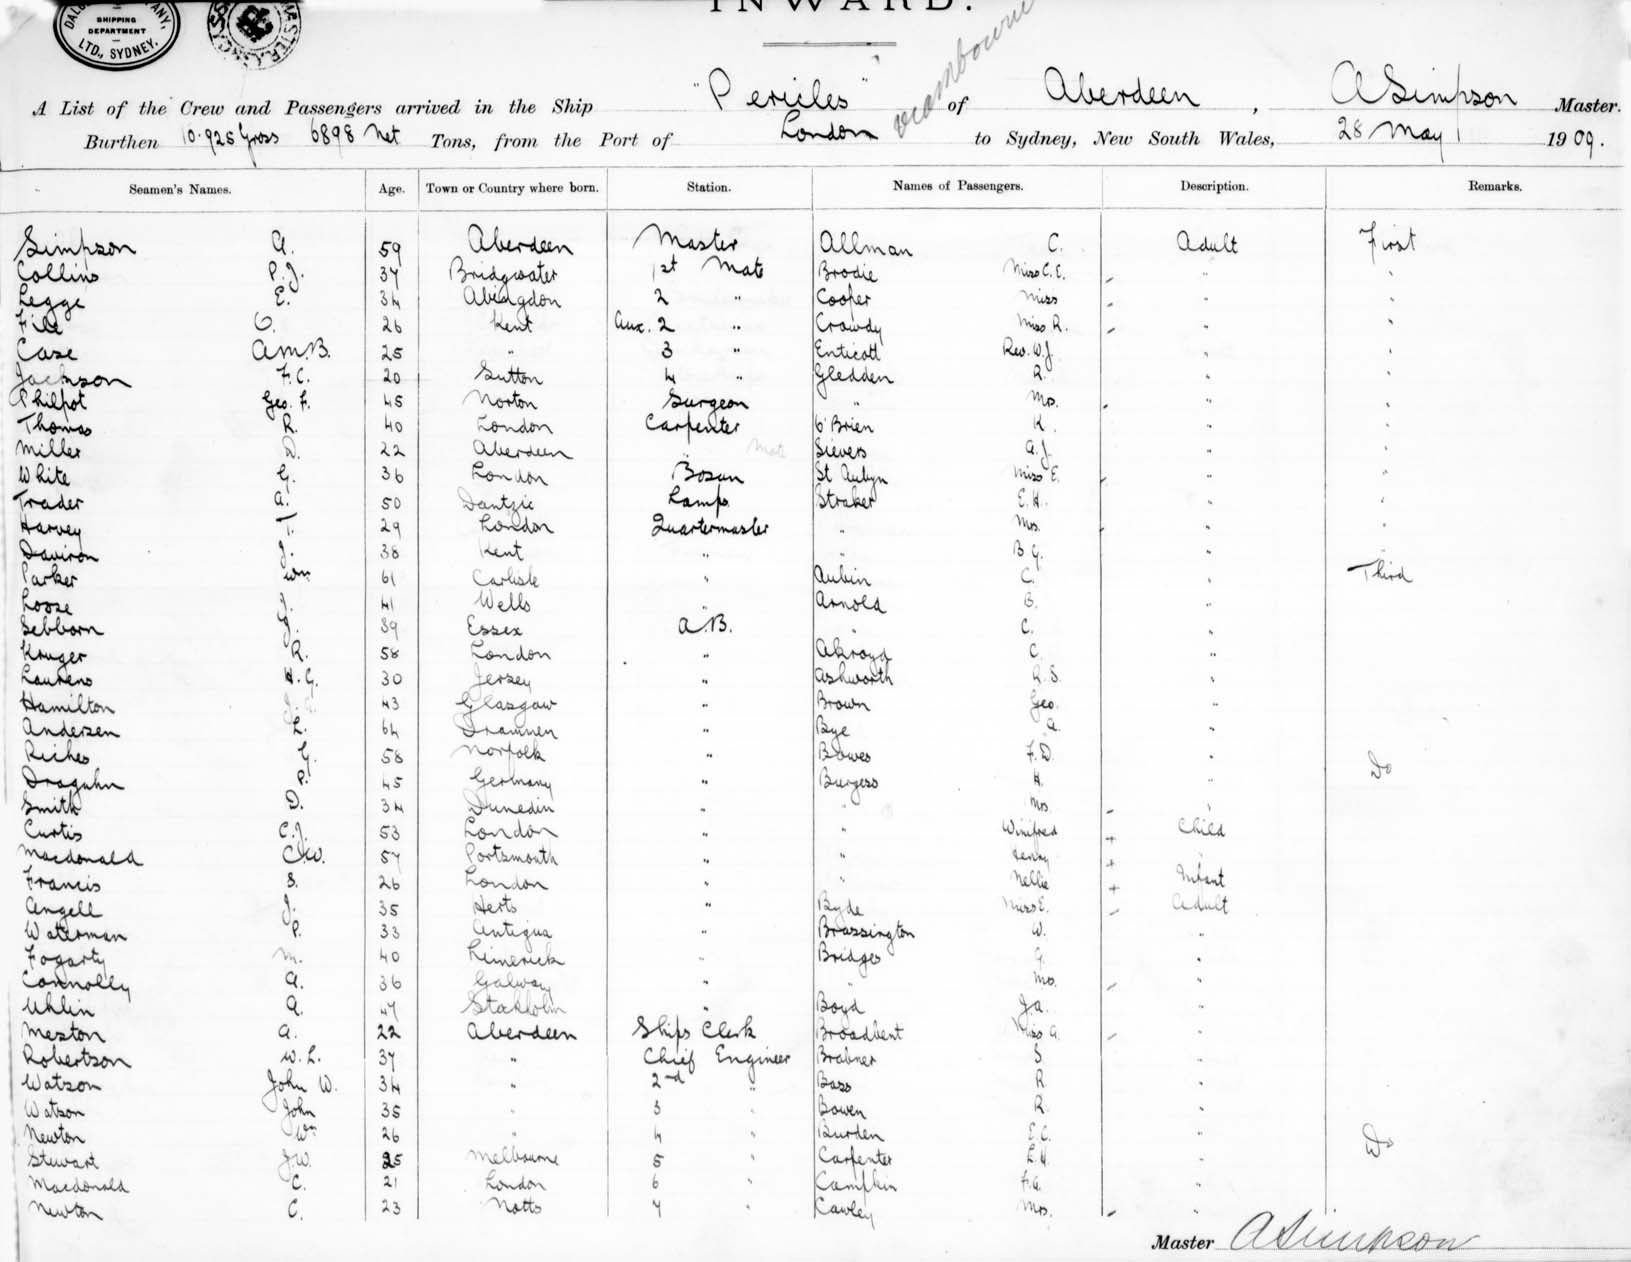 SHIPPING
DEPARTMENT
LTD., SYDNEY.
INWARD.
A List of the Crew and Passengers arrived in the Ship "Pericles" of Aberdeen, A Simpson Master.
Burthen 10.925 Gross 6898 Net Tons, from the Port of London to Sydney, New South Wales, 28 May 1909.
Seamen's Names. Age. Town or Country where born. Station. Names of Passengers. Description. Remarks.
Simpson A. 59 Aberdeen Master Allman C. Adult First
Collins P.J. 37 Bridgwater 1st Mate Brodie Miss C.E. "
Legge E. 34 Abingdon 2 " Cooper Miss "
File C. 26 Kent Aux. 2 " Crowdy Miss R. "
Case A.M.B. 25 " 3 " Enticott Rev. W.J. "
Jackson F.C. 20 Sutton 4 " Gledden R. "
Philpot Geo. F. 45 Norton Surgeon " Mrs. "
Thomas R. 40 London Carpenter O'Brien K. "
Miller D. 22 Aberdeen " Mate Sievers A.J. "
White G. 36 London Bosun St Aubyn Miss E. "
Trader A. 50 Dantzic Lamps Straker E.H. "
Harvey 29 London Quartermaster " Mrs. "
Daviron J. 38 Kent " " B.G. "
Parker Wm 61 Carlisle " Aubin C. " Third
Loose J. 41 Wells " Arnold B. "
Sebborn J. 39 Essex A.B. " C. "
Kruger R. 58 London " Akroyd C. "
Laurens H.G. 30 Jersey " Ashworth R.S. "
Hamilton J. 43 Glasgow " Brown Geo. "
Andersen L. 64 Drammen " Bye A. "
Riches G. 58 Norfolk " Bowes F.D. "
Draguhn P. 45 Germany " Burgess H. " Do
Smith D. 34 Dunedin " " Mrs. "
Curtis C.J. 53 London " " Winifred Child
Macdonald C.W. 57 Portsmouth " " Henry "
Francis S. 26 London " " Nellie Infant
Angell J. 35 Herts " Byde Miss E. Adult
Waterman P. 33 Antigua " Brassington W. "
Fogarty M. 40 Limerick " Bridges G. "
Connolly A. 36 Galway " " Mrs. "
Uhlin A. 47 Stockholm " Boyd Ja. "
Meston A. 22 Aberdeen Ships Clerk Broadbent Miss A. "
Robertson W.L. 37 " Chief Engineer Brabner S. "
Watson John W. 34 " 2nd " Bass R "
Watson John 35 " 3 " Bowen R. "
Newton Wm 26 " 4 " Burden E.C. " Do
Stewart J.W. 25 Melbourne 5 " Carpenter L.H. "
Macdonald C. 21 London 6 " Campkin F.A. "
Newton C. 23 Notts 7 " Cawley Mrs. "
Master A Simpson